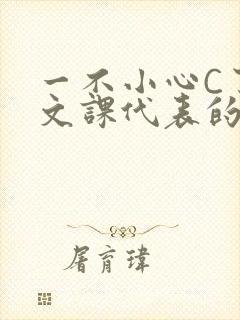 一不小心C
文課代表的
屠育瑋